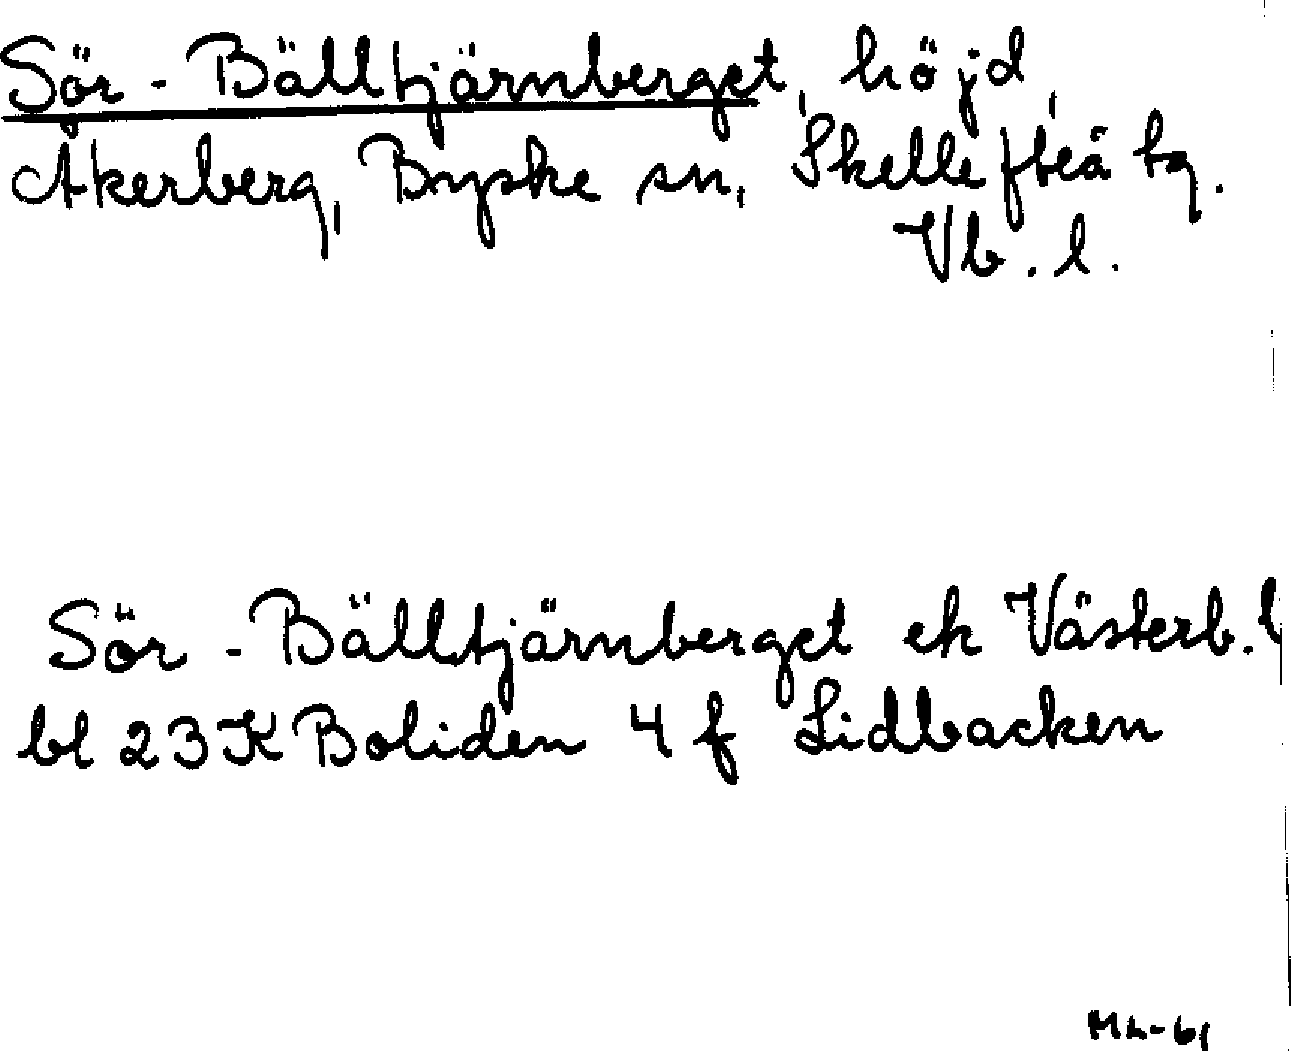 Sör-Bälltjärnberget, höjd,
Åkerberg, Byske sn, Skellefteå tg.
Vb. l.
Sör-Bälltjärnberget ek Västerb. l
bl 23K Boliden 4 f Lidbacken